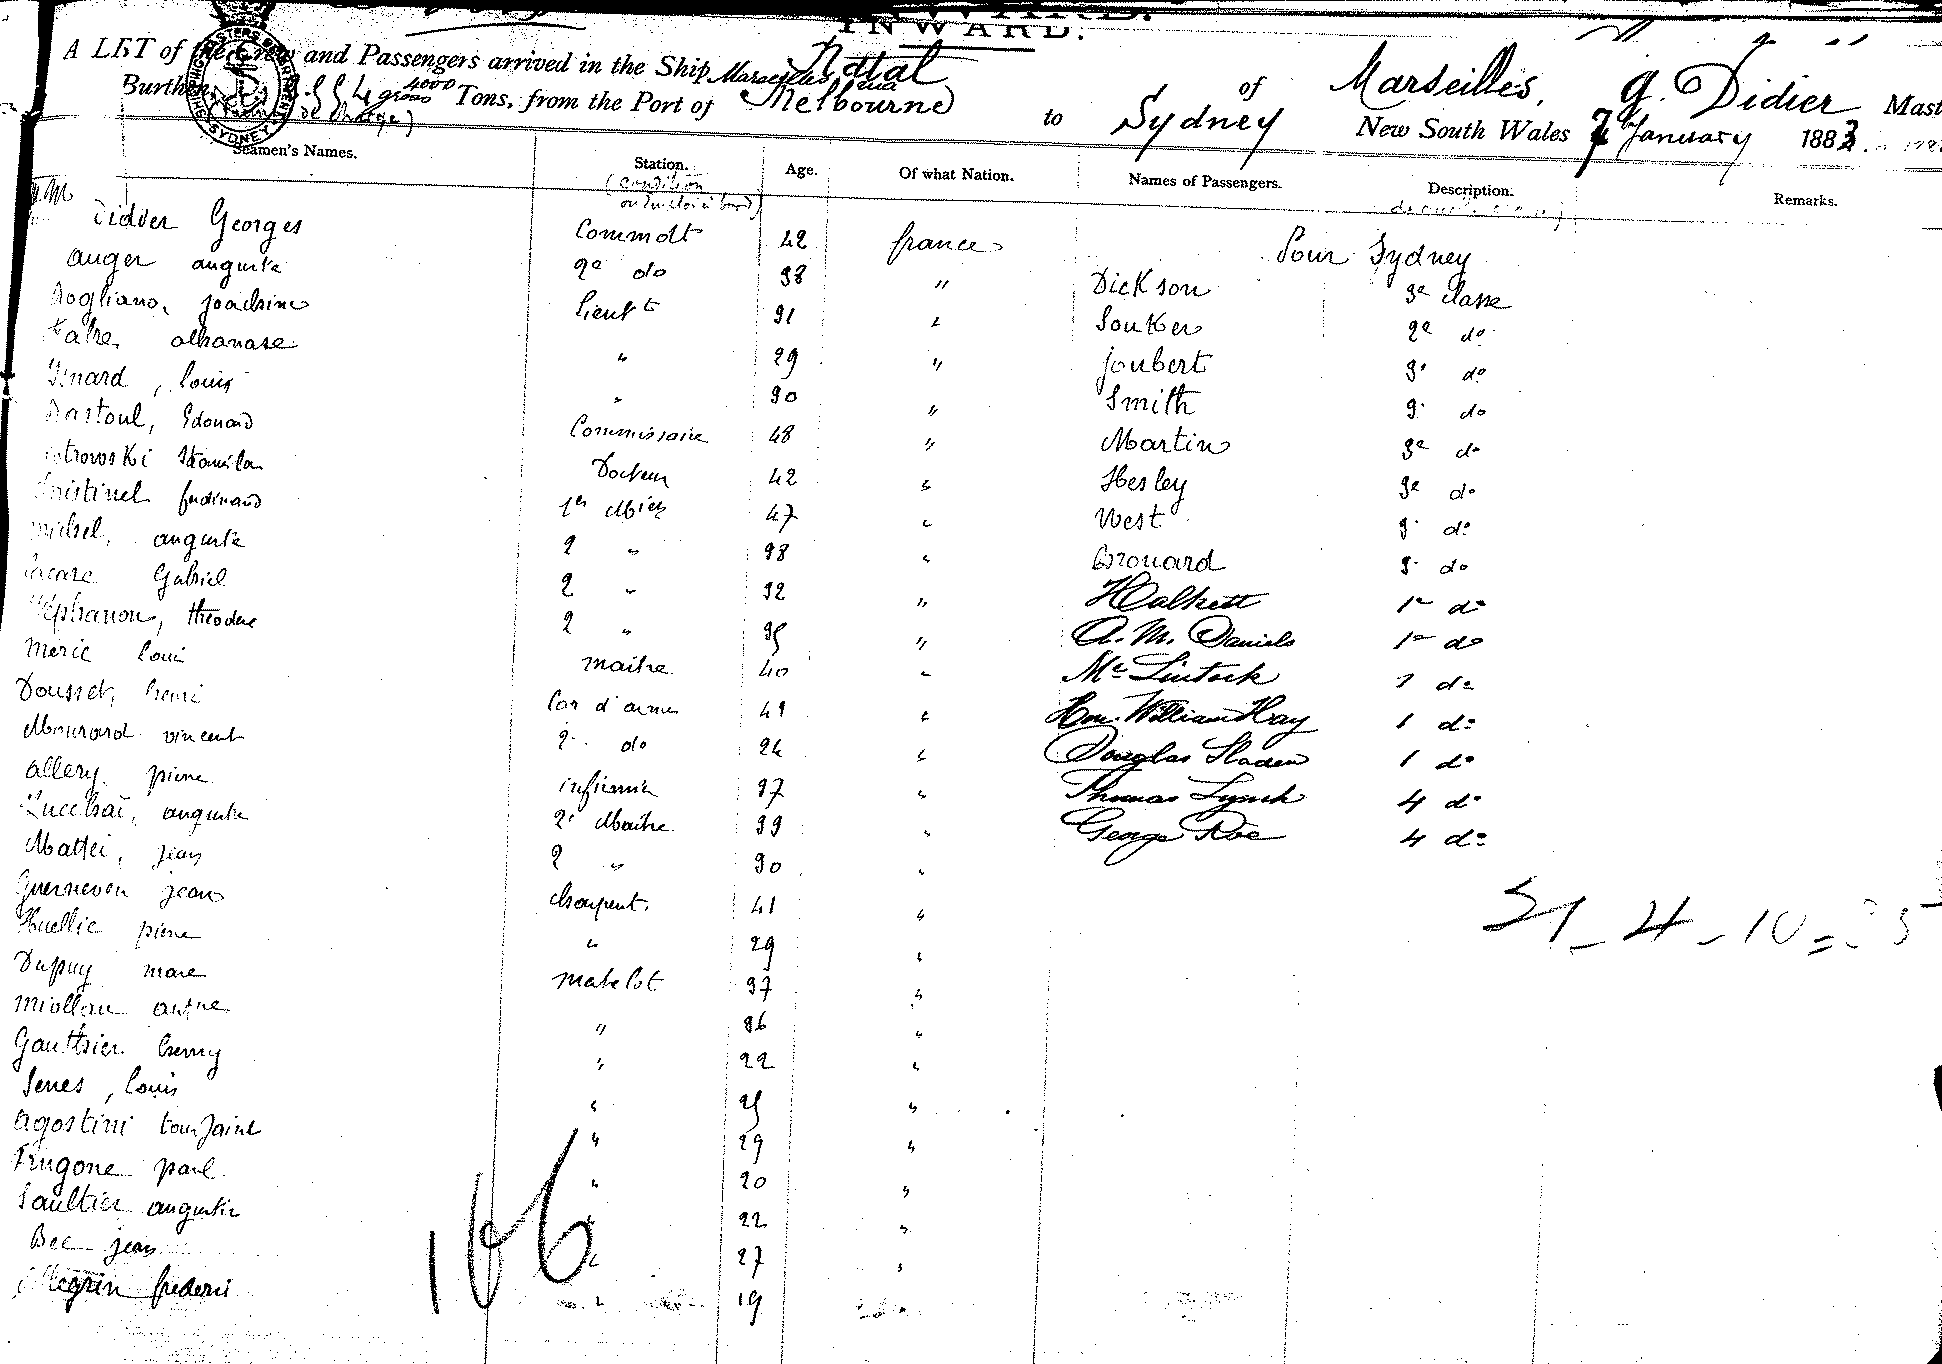 INWARD.
A LIST of the Crew and Passengers arrived in the Ship Natal of Marseilles, G. Didier Mast
Burthen 4000 Tons, from the Port of Melbourne to Sydney New South Wales 7 January 1883
Seamen's Names. Station. Age. Of what Nation. Names of Passengers. Description. Remarks.
(condition
Didier Georges Commdt 42 france Pour Sydney
auger auguste 2e do 38 " Dickson 3e classe
Dogliano, joachim lieutt 31 " Souker 2e do
Fabre athanase " 29 " joubert 3e do
Isnard, louis " 30 " Smith 3e do
Dastoul, Edouard Commissaire 48 " Martin 3e do
ostrovski Stanislas Docteur 42 " Hesley 3e do
ferdinand 1er Mécn 47 " West 3e do
michel, auguste 2 " 38 " Brouard 3e do
Gabriel 2 " 32 " Halkett 1re do
Stéphanon, théodore 2 " 35 " A. M. Daniels 1re do
meric louis maitre 40 " Mc Lintock 1 do
Dousset, henri Cap d'armes 41 " Hon. William Hay 1 do
Mourard vincent 2e do 24 " Douglas Sladen 1 do
allery pierre infirmier 37 " Thomas Lynch 4 do
Lucchaï, auguste 2e Maitre 39 " George Roe 4 do
Mattei, jean 2 " 30 "
Guerneven jean charpent. 41 "
Huellic pierre " 29 "
Dupuy marc matelot 37 "
miollan antne " 36 "
Gauthier henry " 22 "
Senes, louis " 25 "
agostini toussaint " 29 "
Frugone paul " 20 "
Saultier augustin " 22 "
Bec jean " 27 "
frederic 19
106
21 - 4 - 10 = 35